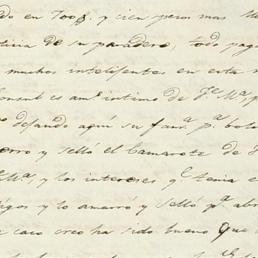 do en 700$ y cien pesos mas
ticia de su paradero, todo pag
muchos inteligentes en esta
onsul es am.º intimo de J.e M.a, y
dejando aquí su fam.a p.a
erro y selló el Camarote de
M.a, y los intereses q.e tenia e
igos y lo amarró y selló p.a abr
caso creo ha sido bueno que